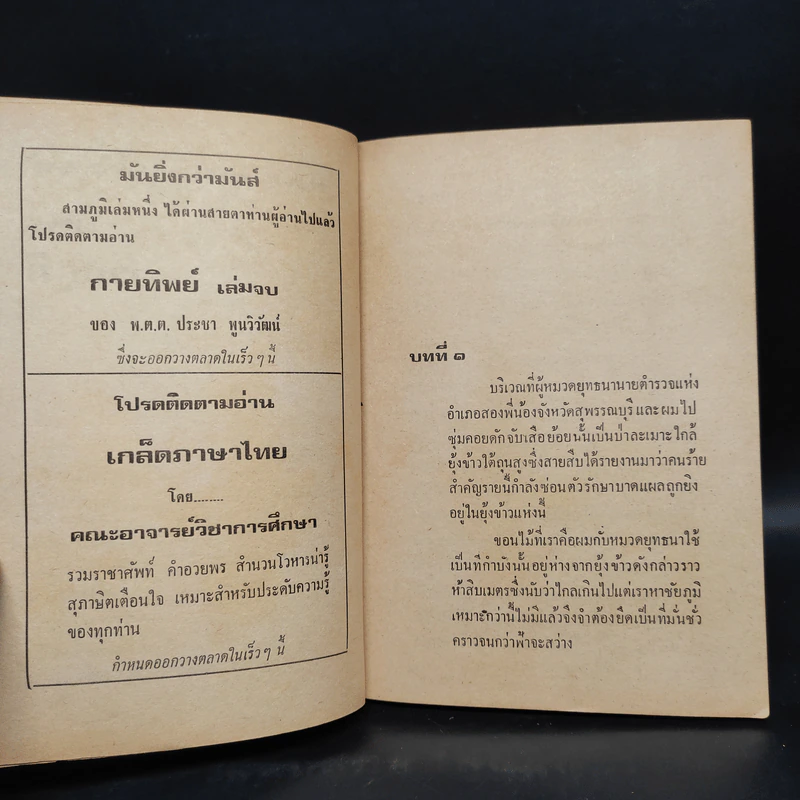 มันยิ่งกว่ามันส์
สามภูมิเล่มหนึ่ง ได้ผ่านสายตาท่านผู้อ่านไปแล้ว
โปรดติดตามอ่าน
กายทิพย์ เล่มจบ
ของ พ.ต.ต. ประชา พูนวิวัฒน์
ซึ่งจะออกวางตลาดในเร็ว ๆ นี้
โปรดติดตามอ่าน
เกล็ดภาษาไทย
โดย........
คณะอาจารย์วิชาการศึกษา
รวมราชาศัพท์ คำอวยพร สำนวนโวหารน่ารู้
สุภาษิตเตือนใจ เหมาะสำหรับประดับความรู้
ของทุกท่าน
กำหนดออกวางตลาดในเร็ว ๆ นี้
บทที่ ๑
บริเวณที่ผู้หมวดยุทธนานายตำรวจแห่ง
อำเภอสองพี่น้องจังหวัดสุพรรณบุรี และผมไป
ซุ่มคอยดักจับเสือย้อยนั้นเป็นป่าละเมาะ ใกล้
ยุ้งข้าวใต้ถุนสูงซึ่งสายสืบได้รายงานมาว่าคนร้าย
สำคัญรายนี้กำลังซ่อนตัวรักษาบาดแผลถูกยิง
อยู่ในยุ้งข้าวแห่งนี้
ขอนไม้ที่เราคือผมกับหมวดยุทธนาใช้
เป็นที่กำบังนั้นอยู่ห่างจากยุ้งข้าวดังกล่าวราว
ห้าสิบเมตรซึ่งนับว่าไกลเกินไปแต่เราหาชัยภูมิ
เหมาะกว่านี้ไม่มีแล้วจึงจำต้องยึดเป็นที่มั่นชั่ว
คราวจนกว่าฟ้าจะสว่าง